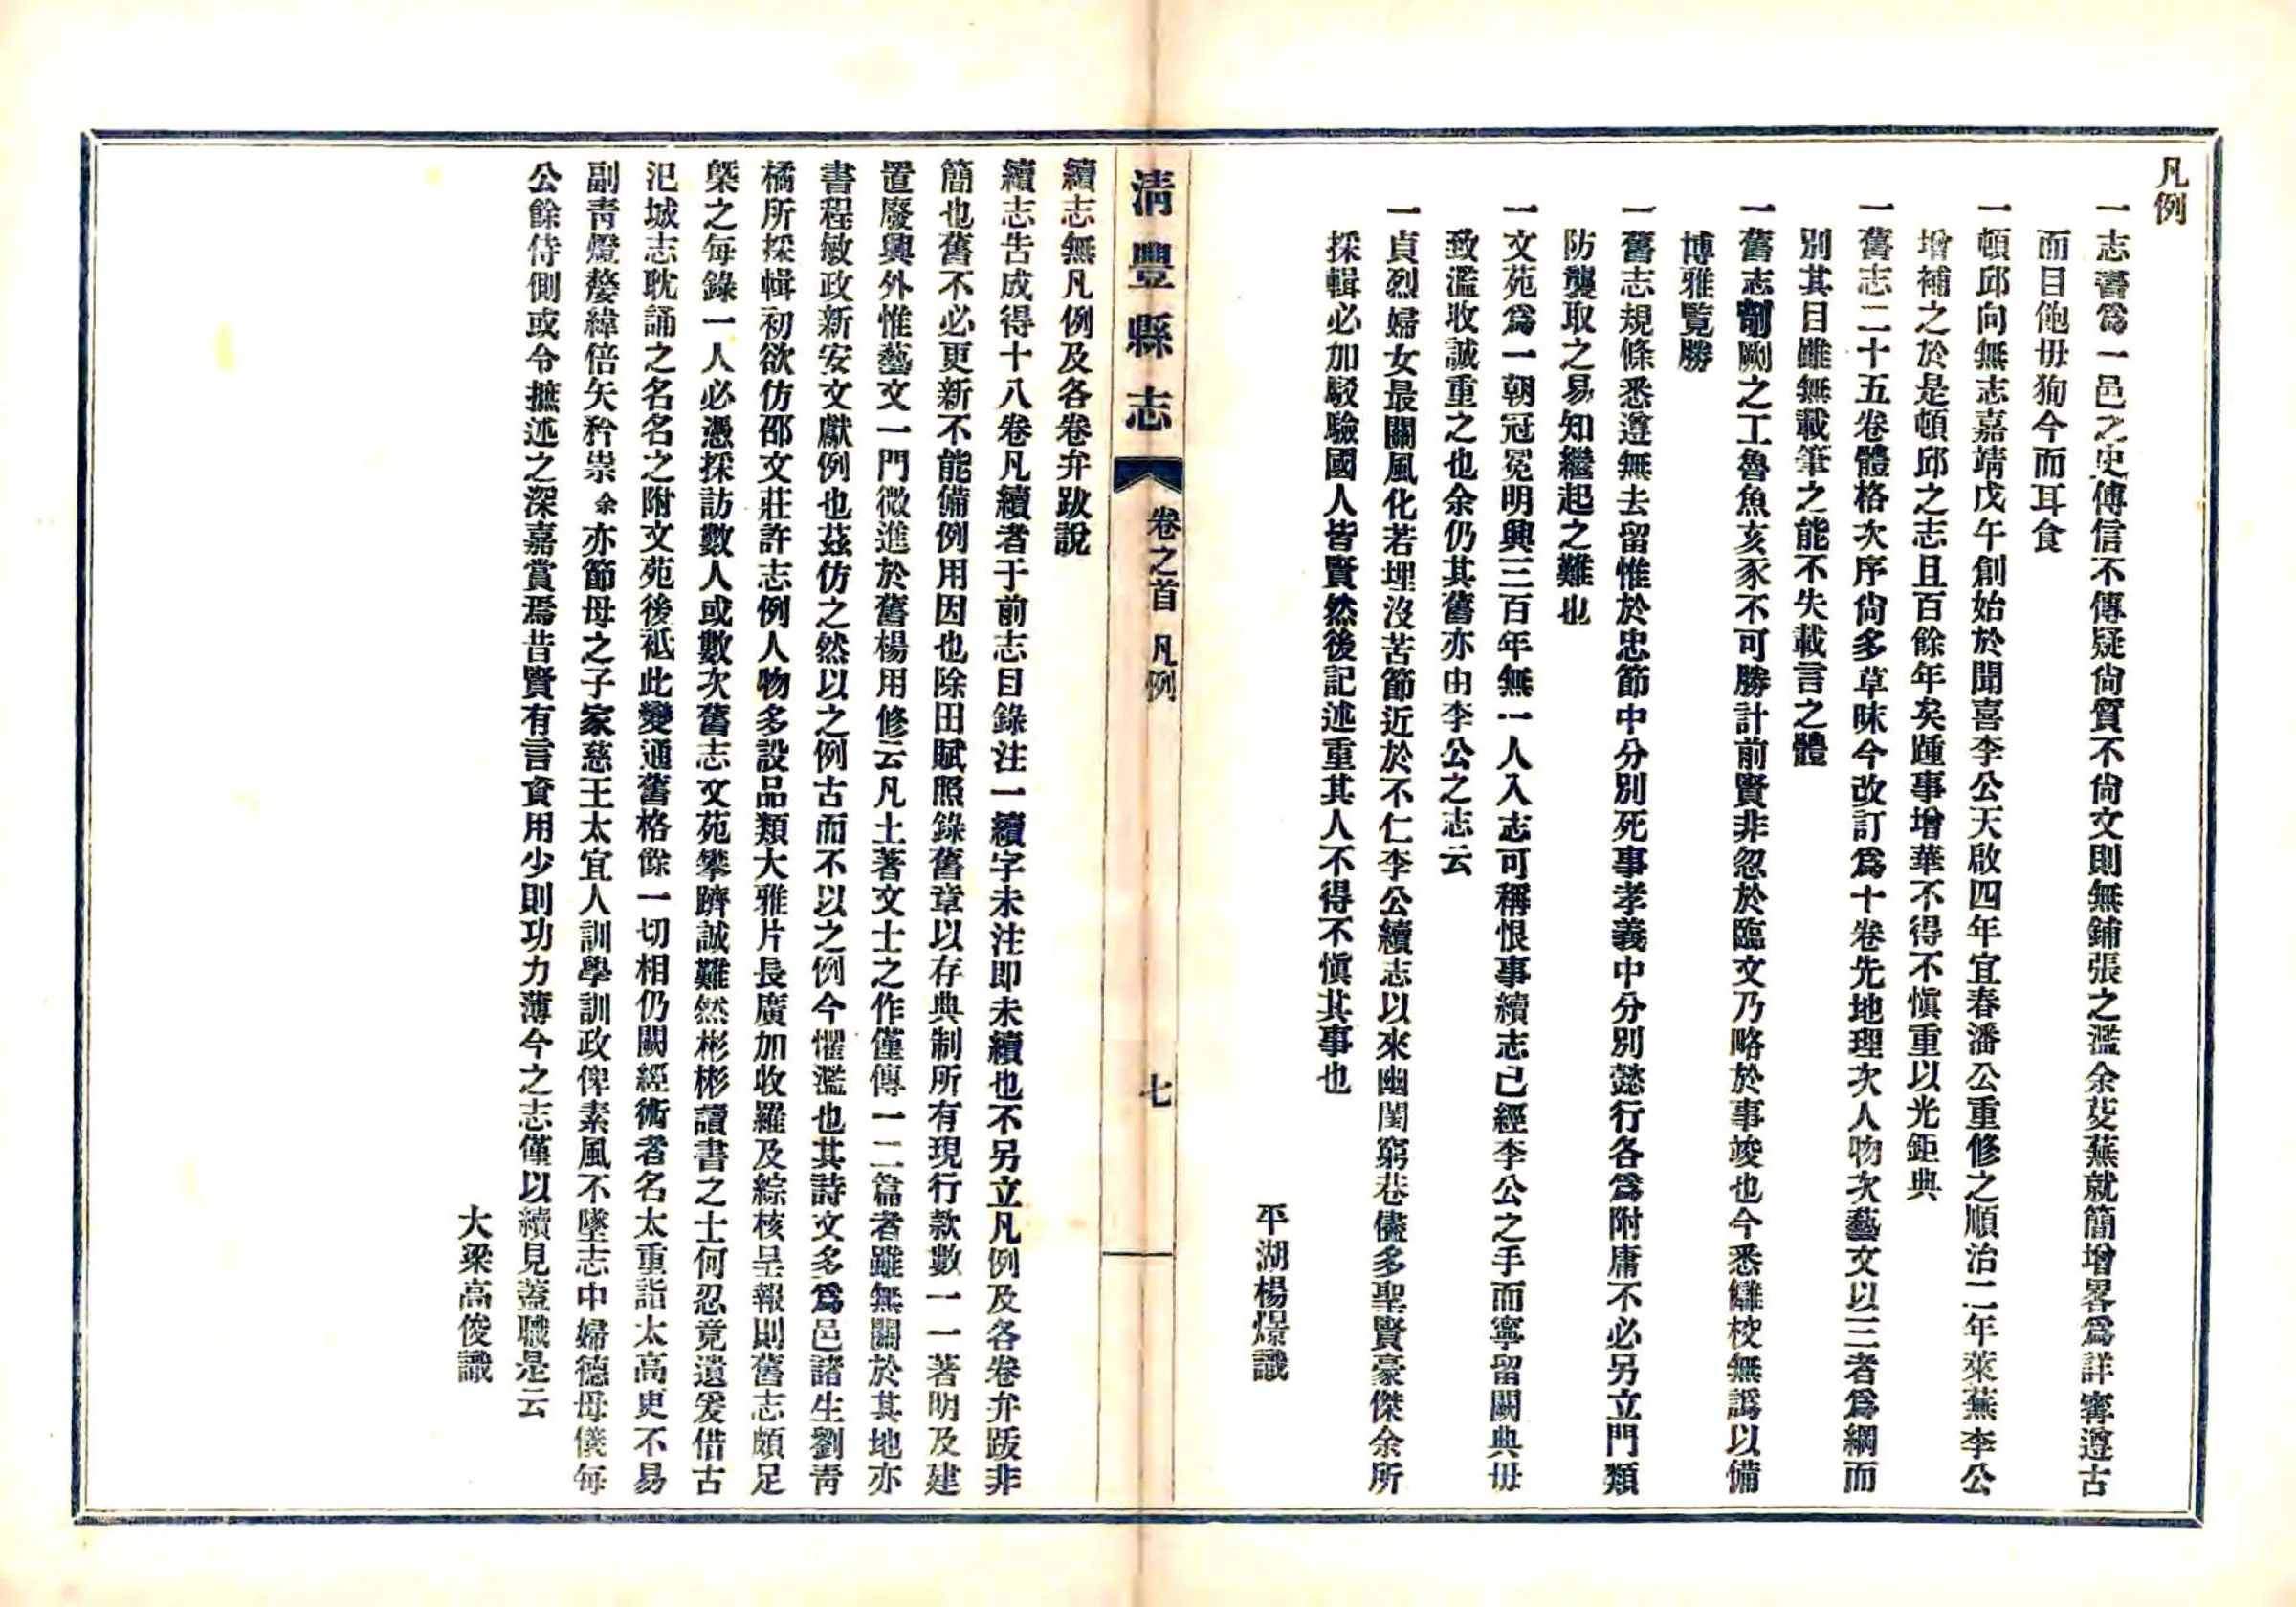 凡例
一志書爲一邑之史傳信不傳疑尙質不尙文則無鋪張之濫余芟蕪就簡增畧爲詳寧遵古
而目飽毋狥今而耳食
一頓邱向無志嘉靖戊午創始於聞喜李公天啟四年宜春潘公重修之順治二年萊蕪李公
增補之於是頓邱之志且百餘年矣踵事增華不得不愼重以光鉅典
一舊志二十五卷體格次序尙多草昧今改訂爲十卷先地理次人物次藝文以三者爲綱而
別其目雖無載筆之能不失載言之體
一舊志剞劂之工魯魚亥豕不可勝計前賢非忽於臨文乃略於事竣也今悉讎校無譌以備
博雅覽勝
一舊志規條悉遵無去留惟於忠節中分別死事孝義中分別懿行各爲附庸不必另立門類
防襲取之易知繼起之難也
一文苑爲一朝冠冕明興三百年無一人入志可稱恨事續志已經李公之手而寧留闕典毋
致濫收誠重之也余仍其舊亦由李公之志云
一貞烈婦女最關風化若埋沒苦節近於不仁李公續志以來幽閨窮巷儘多聖賢豪傑余所
採輯必加駁驗國人皆賢然後記述重其人不得不愼其事也
平湖楊燝識
清豐縣志
卷之首 凡例
七
續志無凡例及各卷弁跋說
續志告成得十八卷凡續者于前志目錄注一續字未注即未續也不另立凡例及各卷弁跋非
簡也舊不必更新不能備例用因也除田賦照錄舊章以存典制所有現行款數一一著明及建
置廢興外惟藝文一門微進於舊楊用修云凡土著文士之作僅傳一二篇者雖無關於其地亦
書程敏政新安文獻例也茲仿之然以之例古而不以之例今懼濫也其詩文多爲邑諸生劉靑
橘所採輯初欲仿邵文莊許志例人物多設品類大雅片長廣加收羅及綜核呈報則舊志頗足
槩之每錄一人必憑採訪數人或數次舊志文苑攀躋誠難然彬彬讀書之士何忍竟遺爰借古
氾城志耽誦之名名之附文苑後祗此變通舊格餘一切相仍闕經術者名太重詣太高更不易
副靑燈嫠緯倍矢矜祟余亦節母之子家慈王太宜人訓學訓政俾素風不墜志中婦德母儀每
公餘侍側或令摭述之深嘉賞焉昔賢有言資用少則功力薄今之志僅以續見蓋職是云
大梁高俊識